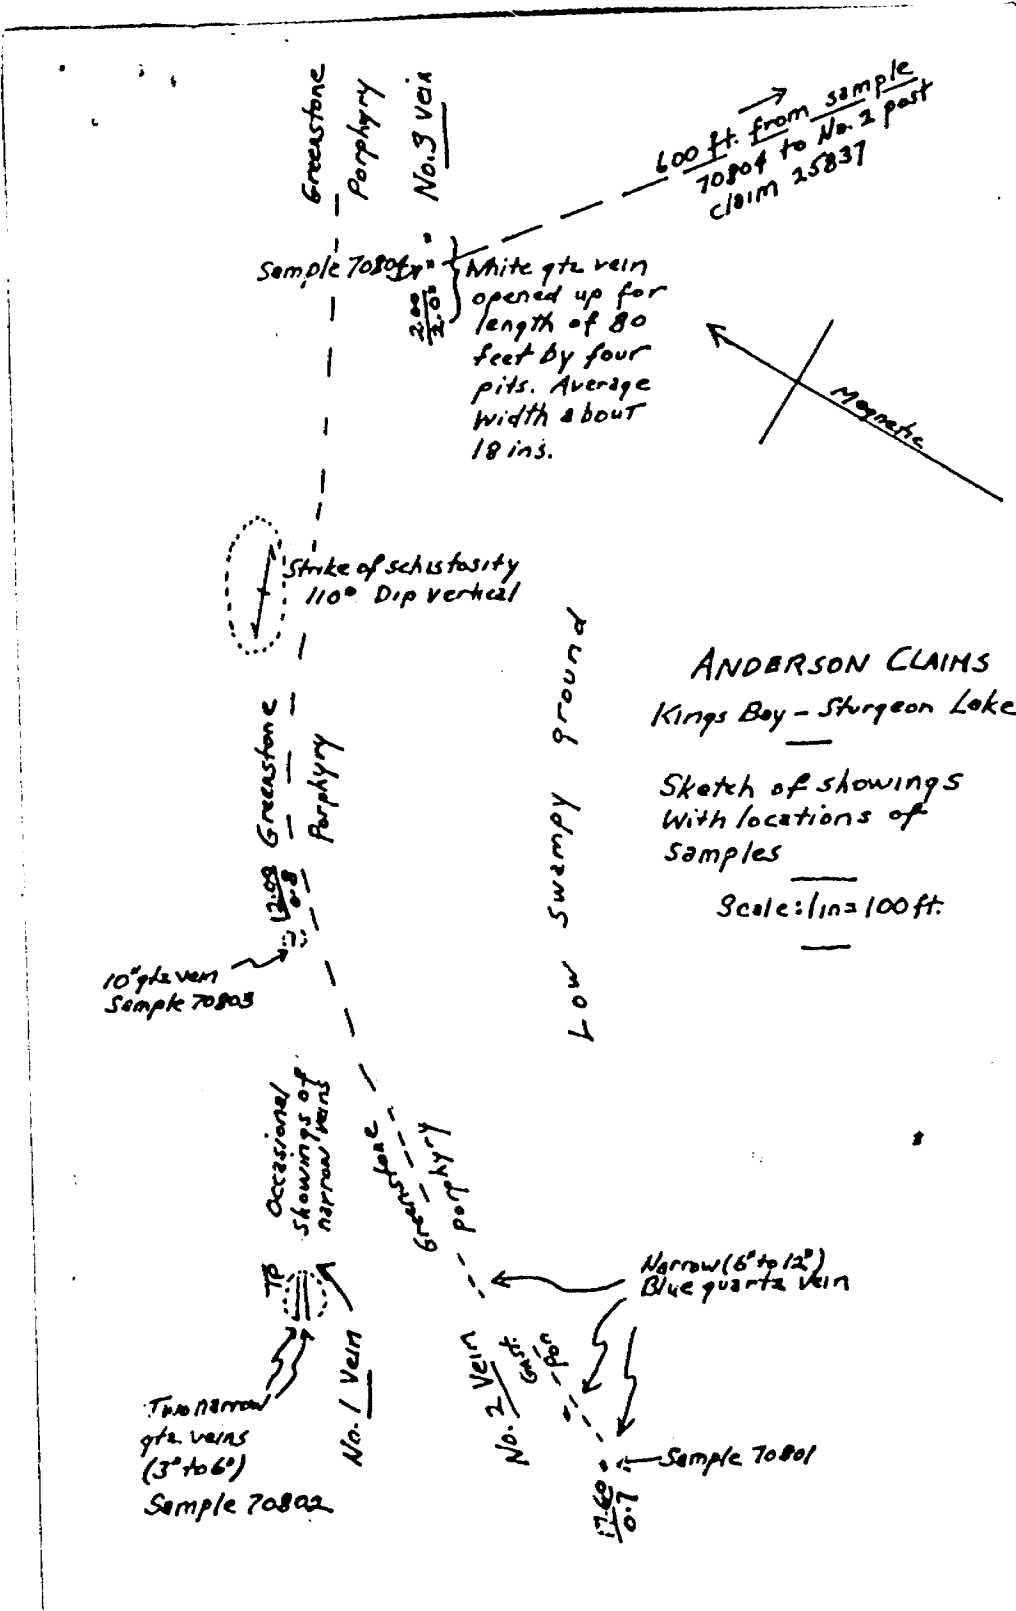 Greenstone
Porphyry
No. 3 Vein
600 ft. from sample
70804 to No. 2 post
claim 25837
Sample 70804
2.00
2.0
White qtz vein
opened up for
length of 80
feet by four
pits. Average
width about
18 ins.
Magnetic
Strike of schistosity
110° Dip vertical
ANDERSON CLAIMS
Kings Bay - Sturgeon Lake
Sketch of showings
With locations of
Samples
Scale: 1 in = 100 ft.
Low swampy ground
Greenstone
Porphyry
0.8
10" qtz vein
Sample 70803
Occasional
showings of
narrow veins
Greenstone
porphyry
TP
Narrow (6" to 12")
Blue quartz vein
No. 1 Vein
No. 2 Vein
Gnst.
Por
Two narrow
qtz veins
(3" to 6")
Sample 70802
Sample 70801
17.60
0.7